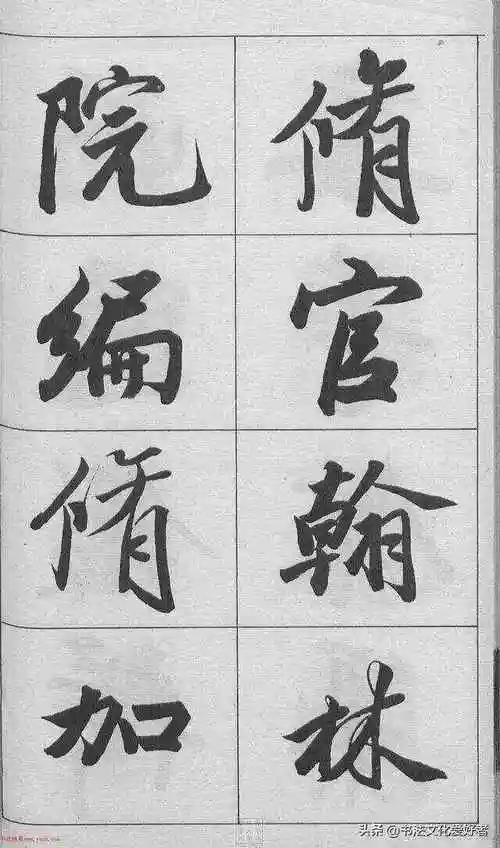 脩官翰林
院編脩加
头条@书法文化爱好者